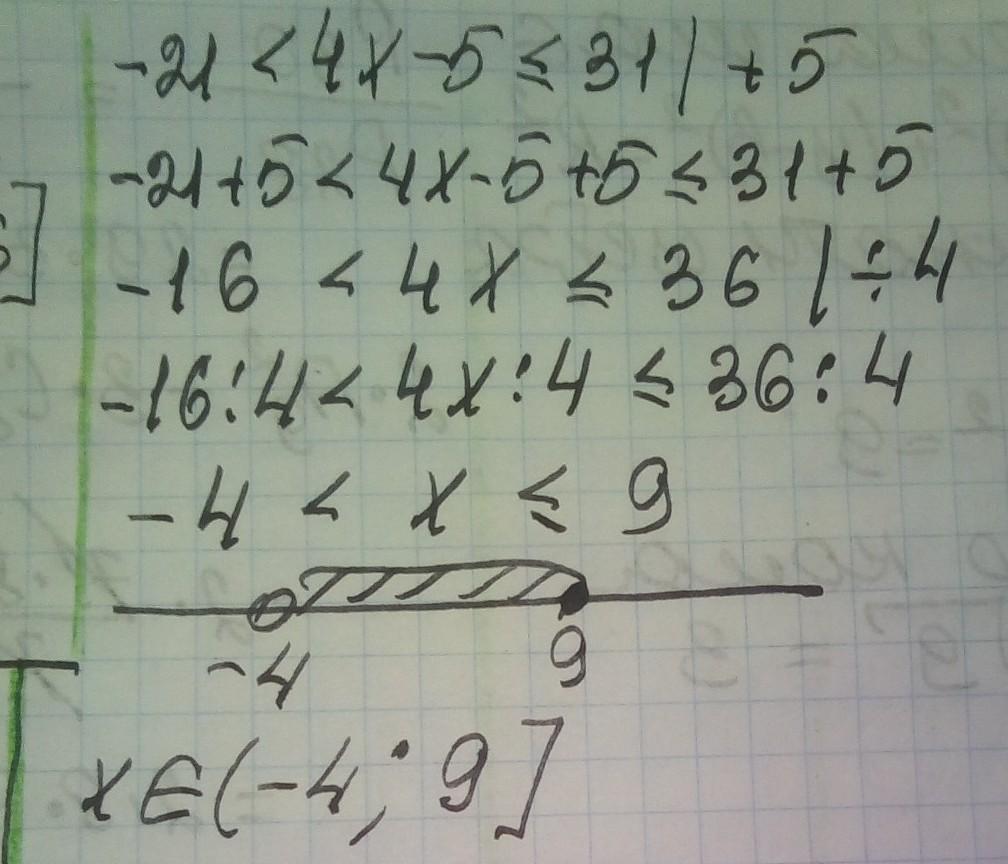 -21 < 4x - 5 ≤ 31 | + 5
-21+5 < 4x - 5 + 5 ≤ 31 + 5
-16 < 4x ≤ 36 | ÷4
-16:4 < 4x:4 ≤ 36:4
-4 < x ≤ 9
-4 9
x∈(-4; 9]